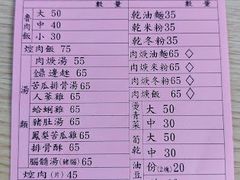 數量
數量
魯肉飯
大 50
中 40
小 30
焢肉飯 75
湯類
肉焿湯 55
鎚邊趖 65
苦瓜排骨湯65
人蔘雞 65
蛤蜊雞 65
豬肚湯 65
鳳梨苦瓜雞65
排骨酥 65
腦髓湯(豬腦)65
焢肉(片)45
乾油麵35
乾米粉35
乾冬粉35
肉焿油麵65◇
肉焿米粉65◇
肉焿冬粉65◇
肉焿飯65◇
燙青菜
大 50
中 30
筍乾
大 50
中 30
油豆
份(2塊) 20